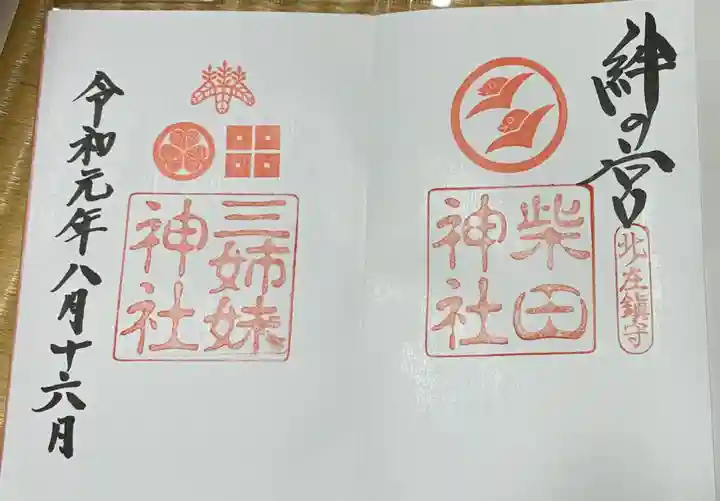 絆の宮
北庄鎮守
柴田
神社
三姉妹
神社
令和元年八月十六月